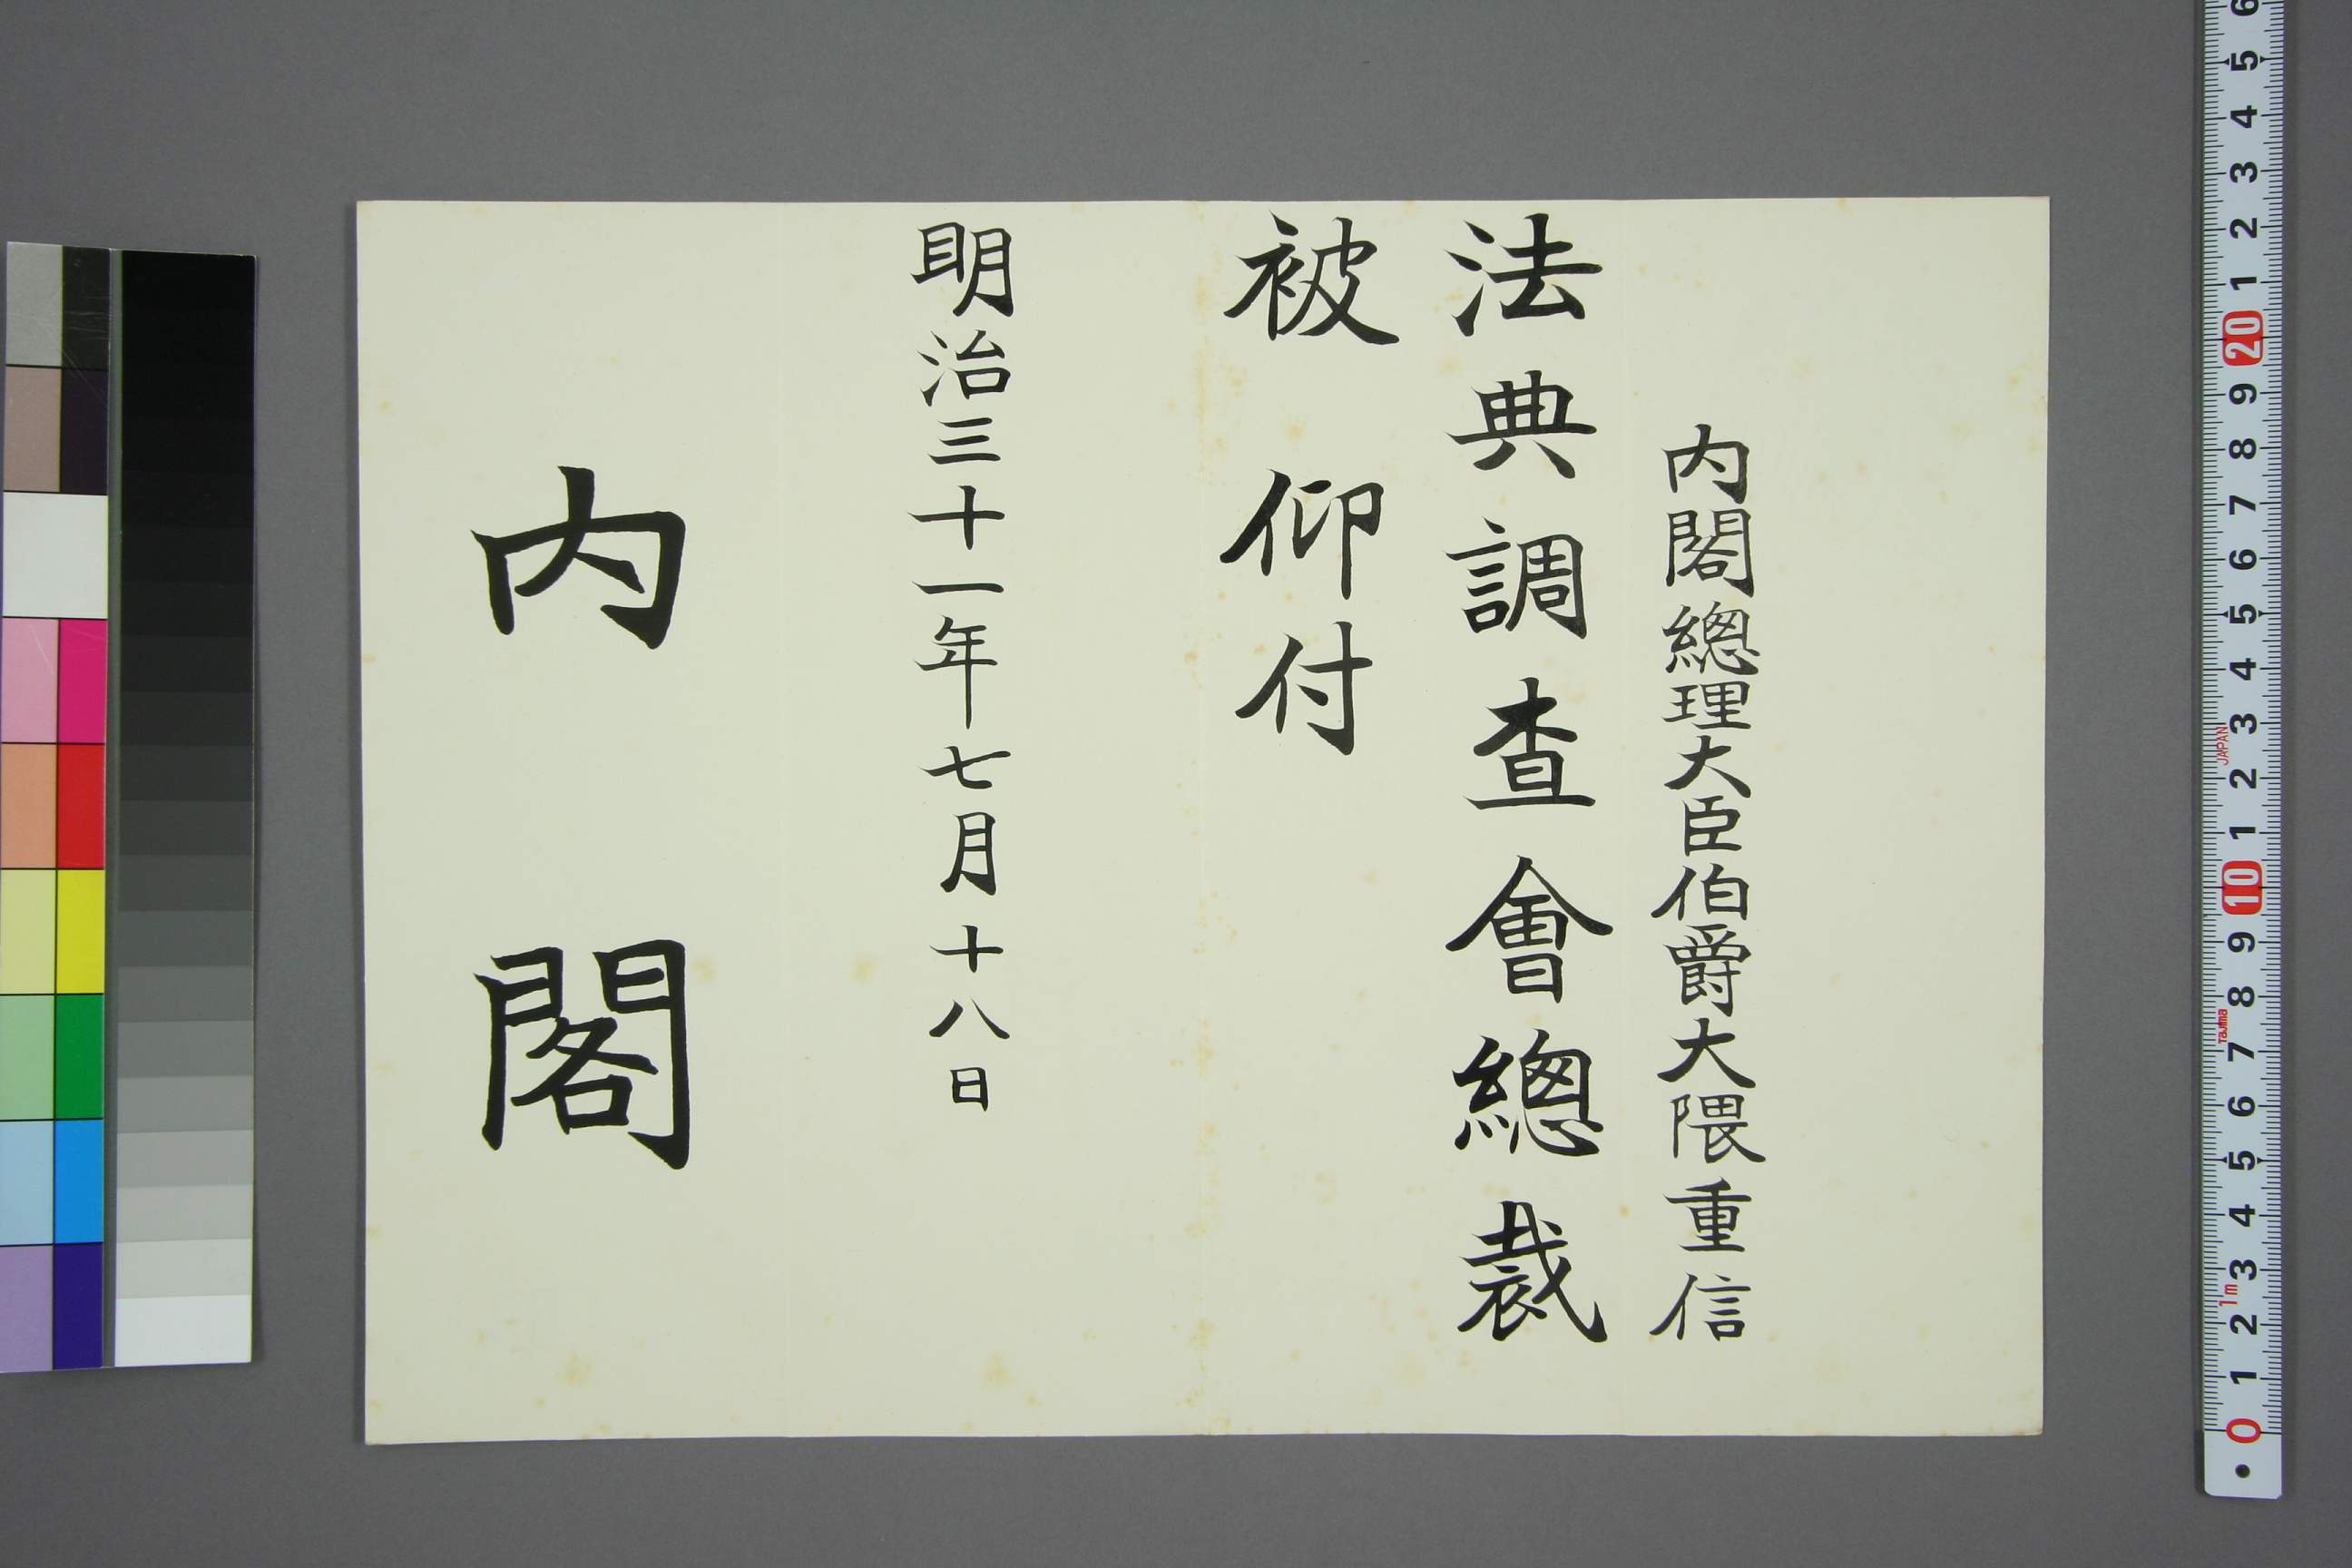 内閣總理大臣伯爵大隈重信
法典調査會總裁
被 仰付
明治三十一年七月十八日
内閣
6 5 4 3 2 1 20 9 8 7 6 5 4 3 2 1 10 9 8 7 6 5 4 3 2 1 0
JAPAN
Tajima
1m